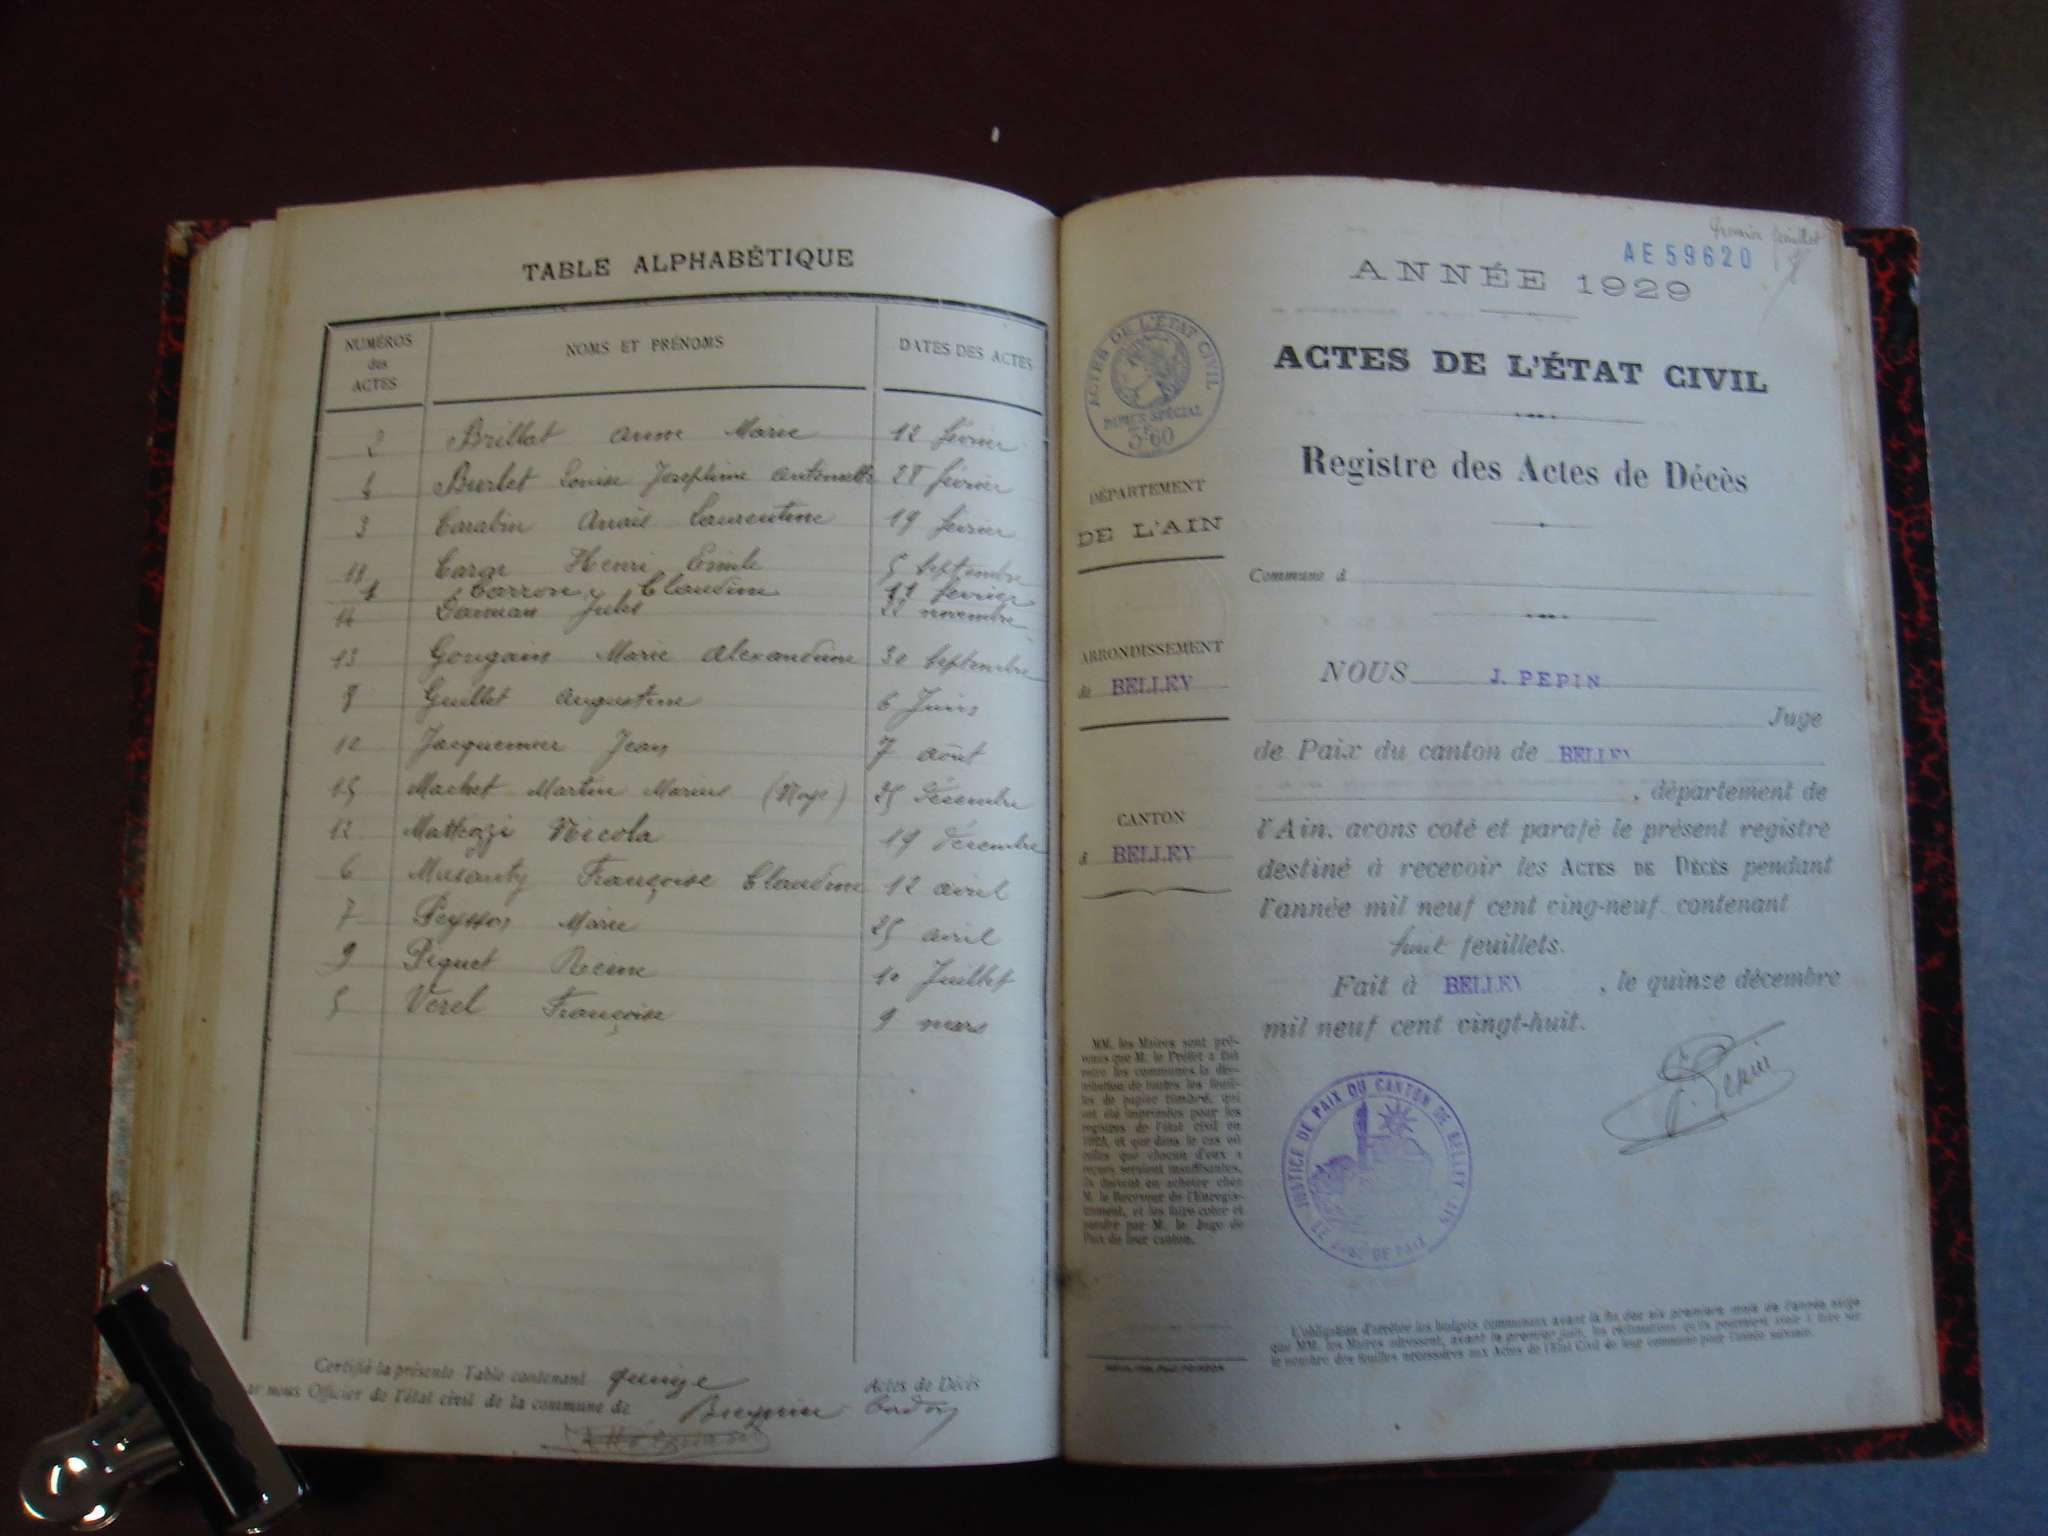 TABLE ALPHABÉTIQUE
NUMÉROS des ACTES
NOMS ET PRÉNOMS
DATES DES ACTES
2 Brillat Anne Marie 12 février
4 Burlet Louise Joséphine Antoinette 28 février
3 Carabin Anaïs Laurentine 19 février
11 Henri Emile 5 Septembre
1 Carron Claudine 11 février
14 Jules 22 novembre
13 Marie Alexandrine 30 Septembre
8 Guillet Augustine 6 Juin
10 Jacquemier Jean 7 août
15 Machet Martin Marius 25 Décembre
12 Nicola 19 décembre
6 Françoise Claudine 12 avril
7 Peysson Marie 25 avril
9 Piguet Reine 10 Juillet
5 Verel Françoise 9 mars
Certifié la présente Table contenant quinze Actes de Décès
ar nous Officier de l'état civil de la commune de
Premier feuillet
AE 59620
ANNÉE 1929
ACTES DE L'ÉTAT CIVIL
PAPIER SPÉCIAL
3F60
ACTES DE L'ÉTAT CIVIL
Registre des Actes de Décès
DÉPARTEMENT
DE L'AIN
Commune d
ARRONDISSEMENT
de BELLEY
CANTON
d BELLEY
NOUS J. PEPIN
Juge
de Paix du canton de BELLEY
, département de
l'Ain, avons coté et parafé le présent registre
destiné à recevoir les ACTES DE DÉCÈS pendant
l'année mil neuf cent ving-neuf, contenant
huit feuillets.
Fait à BELLEY, le quinze décembre
mil neuf cent vingt-huit.
J. Pepin
MM. les Maires sont pré-
venus que M. le Préfet a fait
entre les communes la dis-
tribution de toutes les feuil-
les de papier timbré, qui
ont été imprimées pour les
registres de l'état civil en
et que dans le cas où
celles que chacun d'eux a
reçues seraient insuffisantes,
ils doivent en acheter chez
M. le Receveur de l'Enregis-
trement, et les faire coter et
parafer par M. le Juge de
Paix de leur canton.
JUSTICE DE PAIX DU CANTON DE BELLEY
LE JUGE DE PAIX
L'obligation d'arrêter les budgets communaux avant la fin des six premiers mois de l'année exige
que MM. les Maires adressent, avant le premier juin, les réclamations qu'ils pourraient avoir à faire sur
le nombre des feuilles nécessaires aux Actes de l'État Civil de leur commune pour l'année suivante.